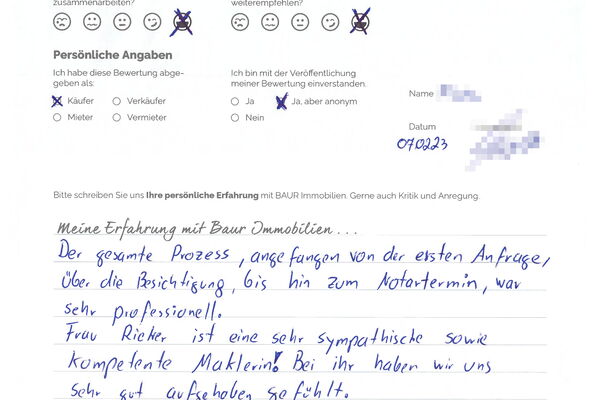 zusammenarbeiten?
weiterempfehlen?
Persönliche Angaben
Ich habe diese Bewertung abge-
geben als:
Ich bin mit der Veröffentlichung
meiner Bewertung einverstanden.
Käufer Verkäufer
Ja Ja, aber anonym
Mieter Vermieter
Nein
Name
Datum
070223
Bitte schreiben Sie uns Ihre persönliche Erfahrung mit BAUR Immobilien. Gerne auch Kritik und Anregung.
Meine Erfahrung mit Baur Immobilien...
Der gesamte Prozess, angefangen von der ersten Anfrage,
über die Besichtigung, bis hin zum Notartermin, war
sehr professionell.
Frau Rieker ist eine sehr sympathische sowie
kompetente Maklerin! Bei ihr haben wir uns
sehr gut aufgehoben gefühlt.